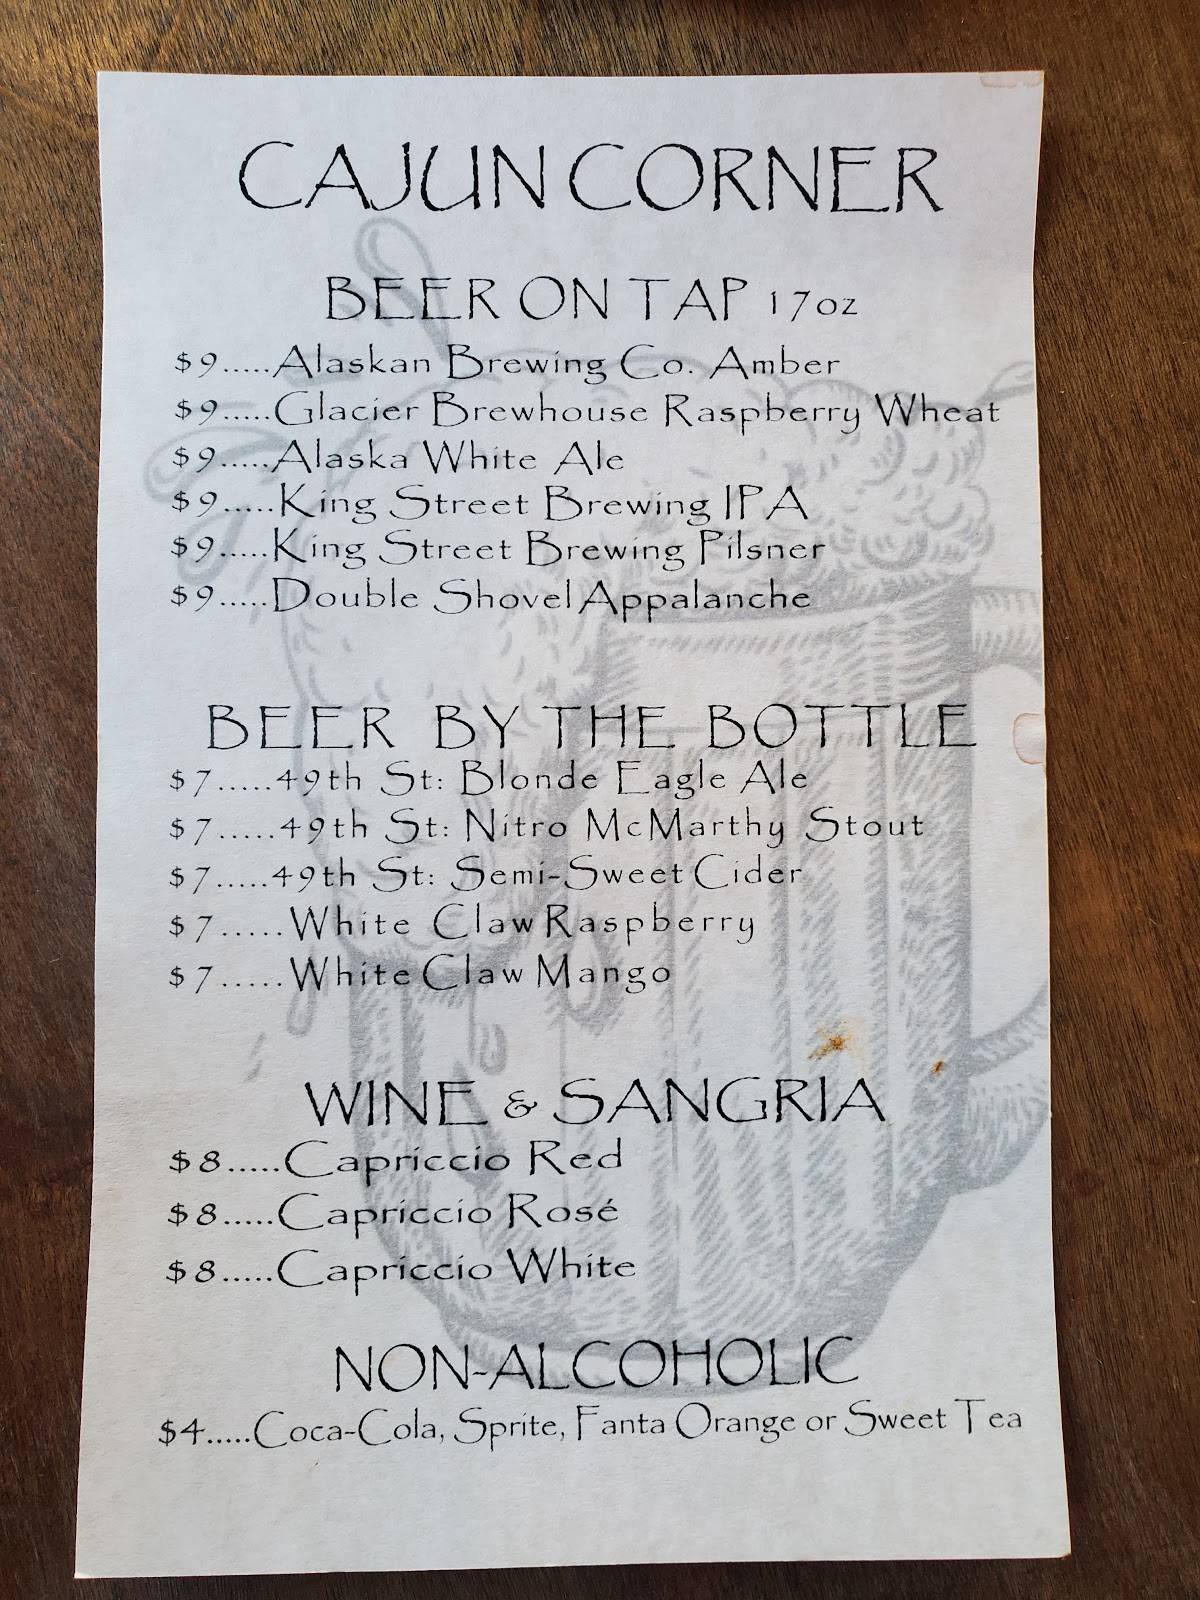 CAJUN CORNER
BEER ON TAP 17oz
$9.....Alaskan Brewing Co. Amber
$9.....Glacier Brewhouse Raspberry Wheat
$9.....Alaska White Ale
$9.....King Street Brewing IPA
$9.....King Street Brewing Pilsner
$9.....Double Shovel Appalanche
BEER BY THE BOTTLE
$7.....49th St: Blonde Eagle Ale
$7.....49th St: Nitro McMarthy Stout
$7.....49th St: Semi-Sweet Cider
$7.....White Claw Raspberry
$7.....White Claw Mango
WINE & SANGRIA
$8.....Capriccio Red
$8.....Capriccio Rosé
$8.....Capriccio White
NON-ALCOHOLIC
$4.....Coca-Cola, Sprite, Fanta Orange or Sweet Tea